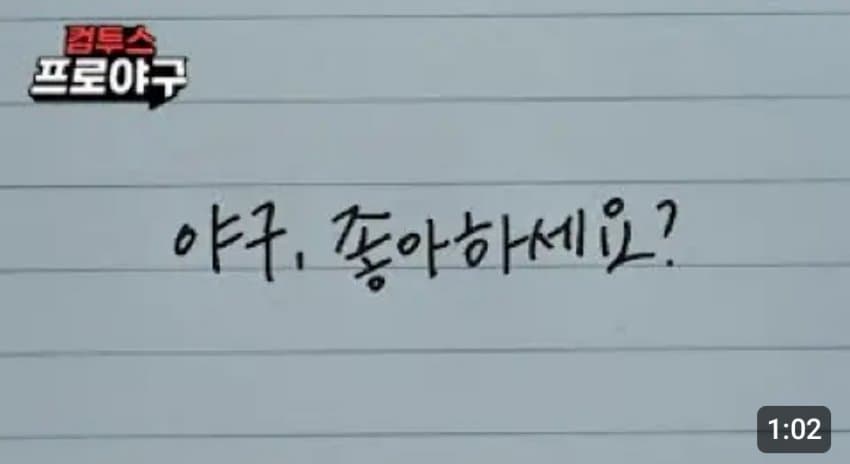 컴투스
프로야구
야구, 좋아하세요?
1:02